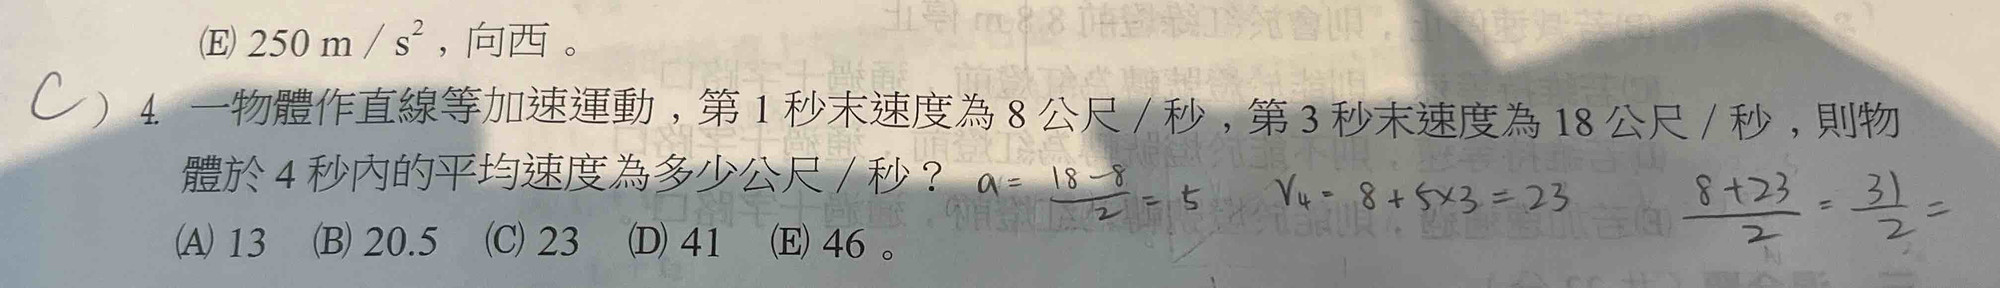 (E) 250 m / s²，向西。
C ) 4. 一物體作直線等加速運動，第 1 秒末速度為 8 公尺 / 秒，第 3 秒末速度為 18 公尺 / 秒，則物
體於 4 秒內的平均速度為多少公尺 / 秒？ a = 18-8/2 = 5 V₄ = 8+5×3 = 23 8+23/2 = 31/2 =
(A) 13 (B) 20.5 (C) 23 (D) 41 (E) 46 。